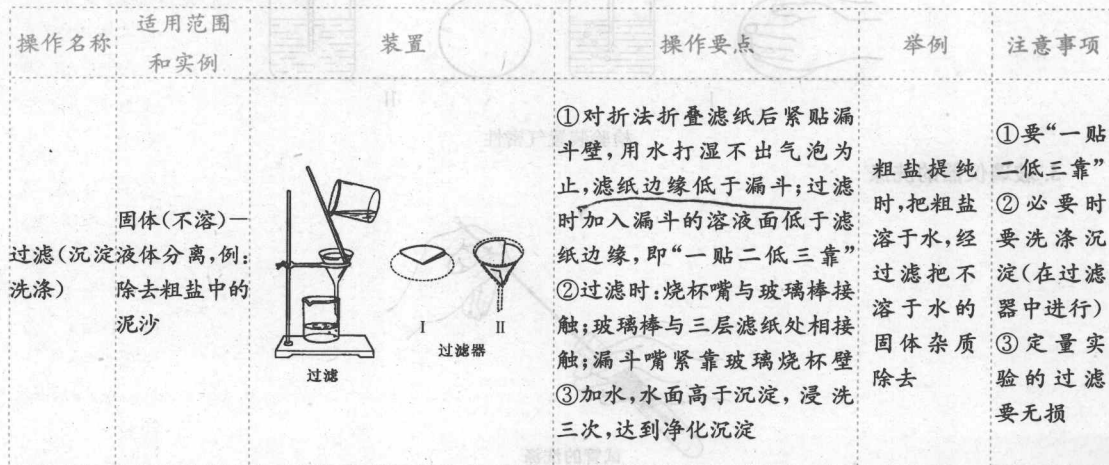 操作名称
适用范围
和实例
装置
操作要点
举例
注意事项
过滤(沉淀
洗涤)
固体(不溶)—
液体分离,例:
除去粗盐中的
泥沙
过滤
Ⅰ
Ⅱ
过滤器
①对折法折叠滤纸后紧贴漏
斗壁,用水打湿不出气泡为
止,滤纸边缘低于漏斗;过滤
时加入漏斗的溶液面低于滤
纸边缘,即“一贴二低三靠”
②过滤时:烧杯嘴与玻璃棒接
触;玻璃棒与三层滤纸处相接
触;漏斗嘴紧靠玻璃烧杯壁
③加水,水面高于沉淀,浸洗
三次,达到净化沉淀
粗盐提纯
时,把粗盐
溶于水,经
过滤把不
溶于水的
固体杂质
除去
①要“一贴
二低三靠”
②必要时
要洗涤沉
淀(在过滤
器中进行)
③定量实
验的过滤
要无损